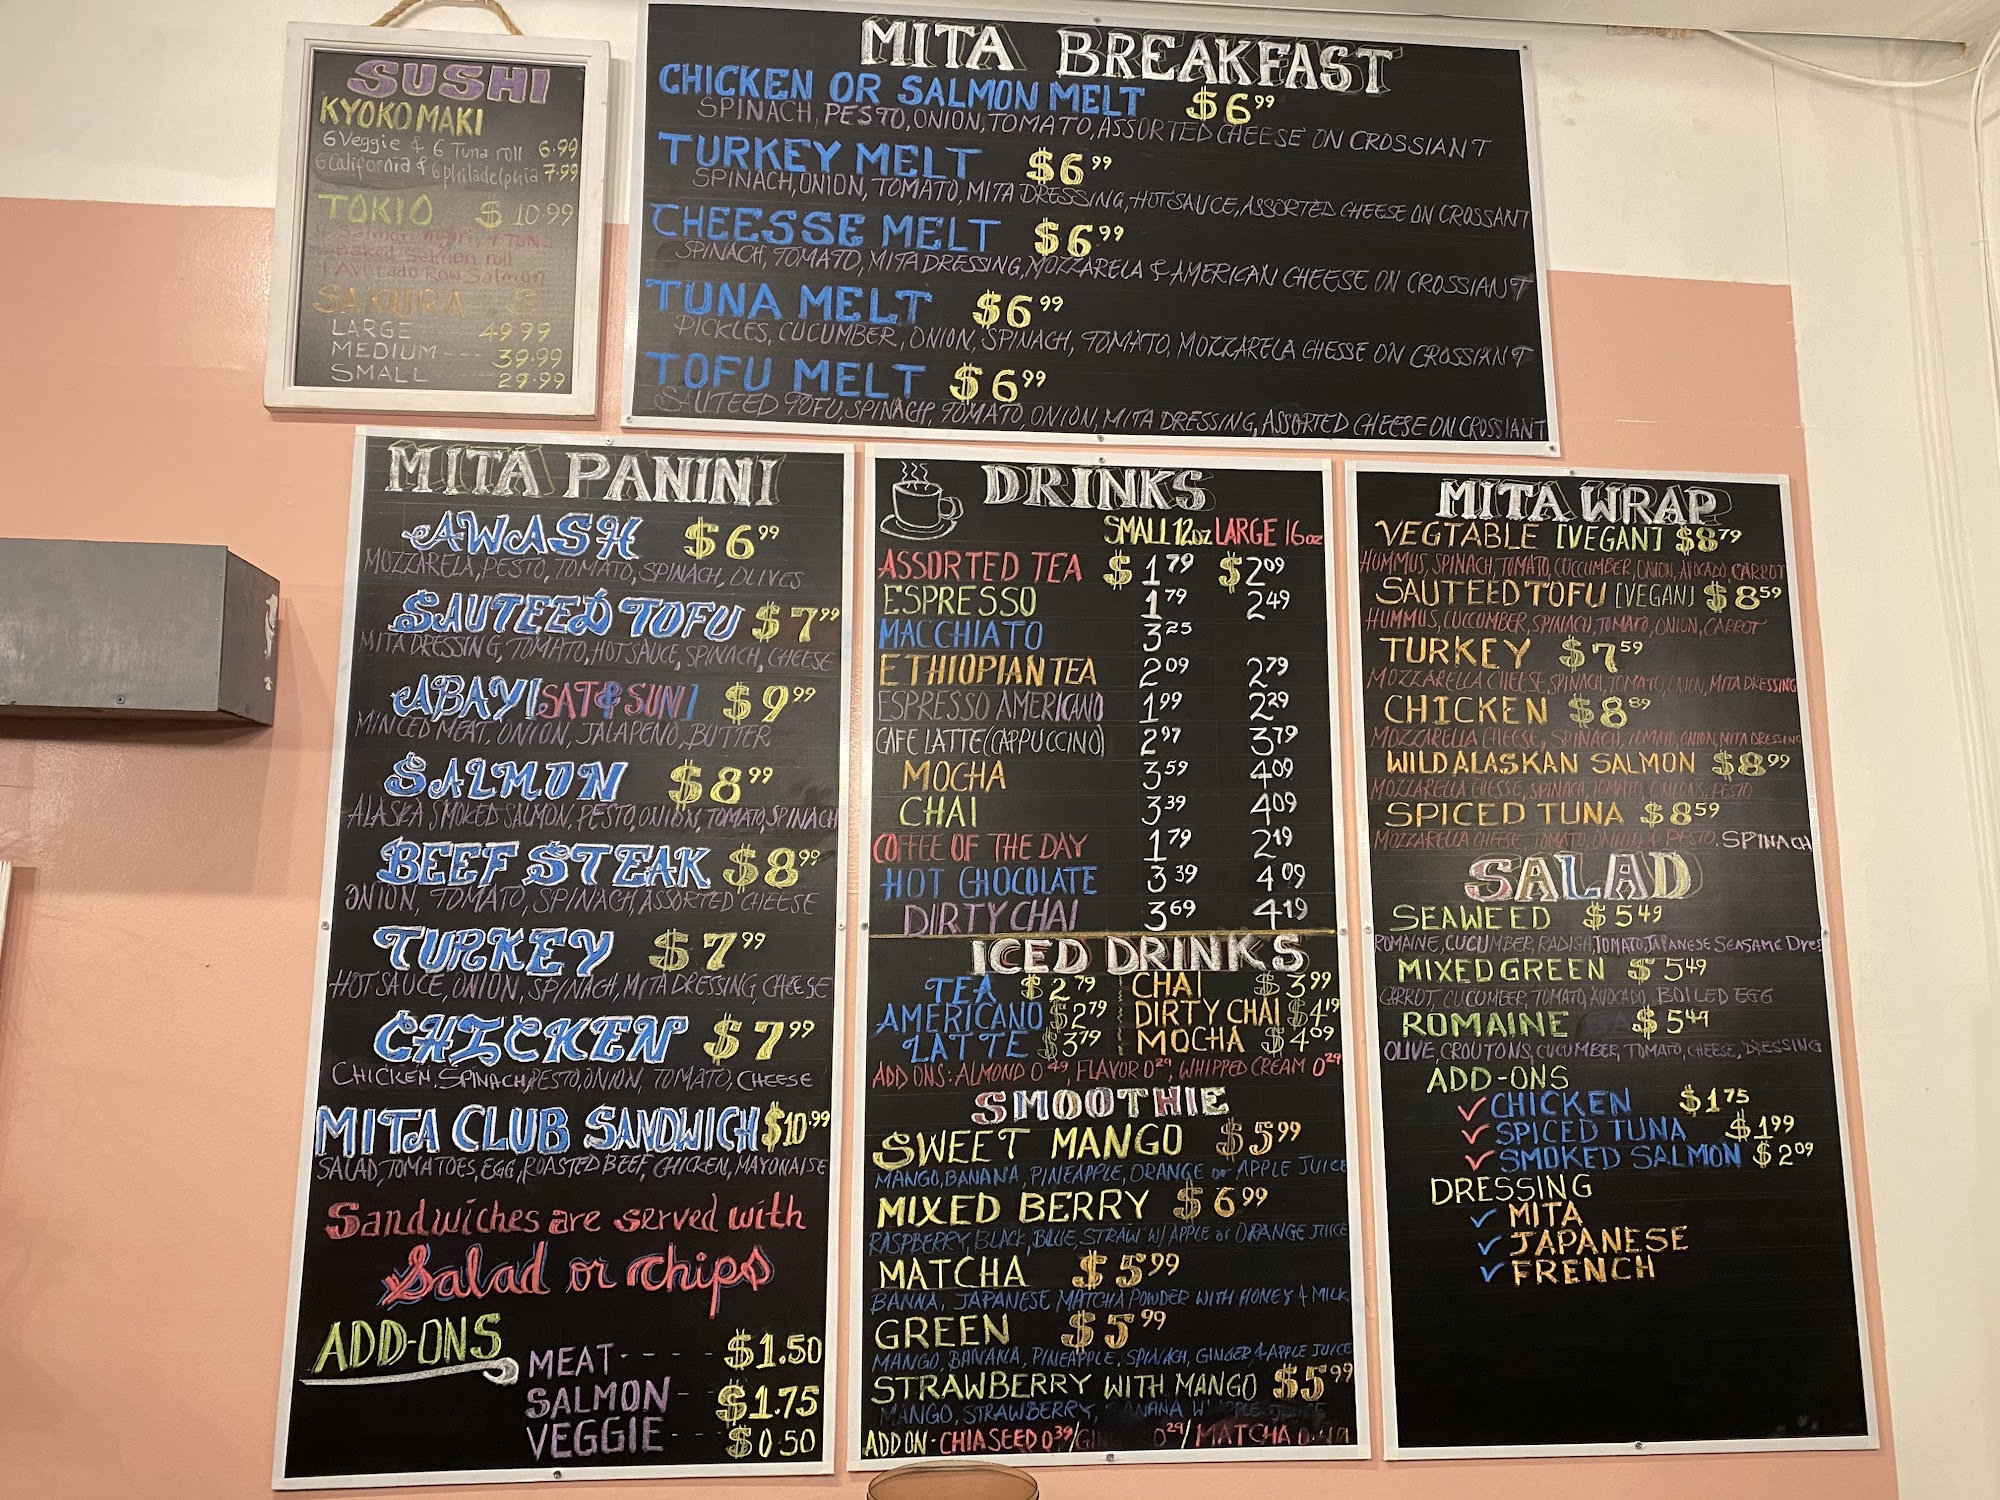 SUSHI
KYOKO MAKI
6 Veggie & 6 Tuna roll 6.99
6 California & 6 philadelphia 7.99
TOKIO $ 10.99
4 Avocado Row Salmon
SAKURA $
LARGE 49.99
MEDIUM --- 39.99
SMALL 29.99
MITA BREAKFAST
CHICKEN OR SALMON MELT $6.99
SPINACH, PESTO, ONION, TOMATO, ASSORTED CHEESE ON CROSSIANT
TURKEY MELT $6.99
SPINACH, ONION, TOMATO, MITA DRESSING, HOT SAUCE, ASSORTED CHEESE ON CROSSANT
CHEESSE MELT $6.99
SPINACH, TOMATO, MITA DRESSING, MOZZARELA & AMERICAN CHEESE ON CROSSIANT
TUNA MELT $6.99
PICKLES, CUCUMBER, ONION, SPINACH, TOMATO, MOZZARELA CHESSE ON CROSSIANT
TOFU MELT $6.99
SAUTEED TOFU, SPINACH, TOMATO, ONION, MITA DRESSING, ASSORTED CHEESE ON CROSSIANT
MITA PANINI
AWASH $6.99
MOZZARELA, PESTO, TOMATO, SPINACH, OLIVES
SAUTEED TOFU $7.99
MITA DRESSING, TOMATO, HOT SAUCE, SPINACH, CHEESE
ABAYI [SAT & SUN] $9.99
MINCED MEAT, ONION, JALAPENO, BUTTER
SALMON $8.99
ALASKA SMOKED SALMON, PESTO, ONION, TOMATO, SPINACH
BEEF STEAK $8.99
ONION, TOMATO, SPINACH, ASSORTED CHEESE
TURKEY $7.99
HOT SAUCE, ONION, SPINACH, MITA DRESSING, CHEESE
CHICKEN $7.99
CHICKEN, SPINACH, PESTO, ONION, TOMATO, CHEESE
MITA CLUB SANDWICH $10.99
SALAD, TOMATOES, EGG, ROASTED BEEF, CHICKEN, MAYONAISE
Sandwiches are served with
Salad or chips
ADD-ONS
MEAT ---- $1.50
SALMON -- $1.75
VEGGIE -- $0.50
DRINKS
SMALL 12oz LARGE 16oz
ASSORTED TEA $1.79 $2.09
ESPRESSO 1.79 2.49
MACCHIATO 3.25
ETHIOPIAN TEA 2.09 2.79
ESPRESSO AMERICANO 1.99 2.29
CAFE LATTE (CAPPUCCINO) 2.97 3.79
MOCHA 3.59 4.09
CHAI 3.39 4.09
COFFEE OF THE DAY 1.79 2.19
HOT CHOCOLATE 3.39 4.09
DIRTY CHAI 3.69 4.19
ICED DRINKS
TEA $2.79 CHAI $3.99
AMERICANO $2.79 DIRTY CHAI $4.19
LATTE $3.79 MOCHA $4.09
ADD ONS: ALMOND 0.49, FLAVOR 0.29, WHIPPED CREAM 0.29
SMOOTHIE
SWEET MANGO $5.99
MANGO, BANANA, PINEAPPLE, ORANGE or APPLE JUICE
MIXED BERRY $6.99
RASPBERRY, BLACK, BLUE, STRAW W/ APPLE or ORANGE JUICE
MATCHA $5.99
BANNA, JAPANESE MATCHA POWDER WITH HONEY & MILK
GREEN $5.99
MANGO, BANANA, PINEAPPLE, SPINACH, GINGER, & APPLE JUICE
STRAWBERRY WITH MANGO $5.99
MANGO, STRAWBERRY,
ADD ON - CHIA SEED 0.39/ 0.29/ MATCHA
MITA WRAP
VEGTABLE [VEGAN] $8.79
HUMMUS, SPINACH, TOMATO, CUCCUMBER, ONION, AVOCADO, CARROT
SAUTEED TOFU [VEGAN] $8.59
HUMMUS, CUCCUMBER, SPINACH, TOMATO, ONION, CARROT
TURKEY $7.59
MOZZARELLA CHEESE, SPINACH, TOMATO, ONION, MITA DRESSING
CHICKEN $8.89
MOZZARELLA CHEESE, SPINACH, TOMATO, ONION, MITA DRESSING
WILD ALASKAN SALMON $8.99
MOZZARELLA CHEESE, SPINACH, TOMATO, ONIONS, PESTO
SPICED TUNA $8.59
MOZZARELLA CHEESE, TOMATO, ONION & PESTO. SPINACH
SALAD
SEAWEED $5.49
ROMAINE, CUCUMBER, RADISH, TOMATO, JAPANESE SEASAME DRES
MIXED GREEN $5.49
CARROT, CUCOMBER, TOMATO, AVOCADO, BOILED EGG
ROMAINE $5.49
OLIVE, CROUTONS, CUCUMBER, TOMATO, CHEESE, DRESSING
ADD-ONS
✓ CHICKEN $1.75
✓ SPICED TUNA $1.99
✓ SMOKED SALMON $2.09
DRESSING
✓ MITA
✓ JAPANESE
✓ FRENCH